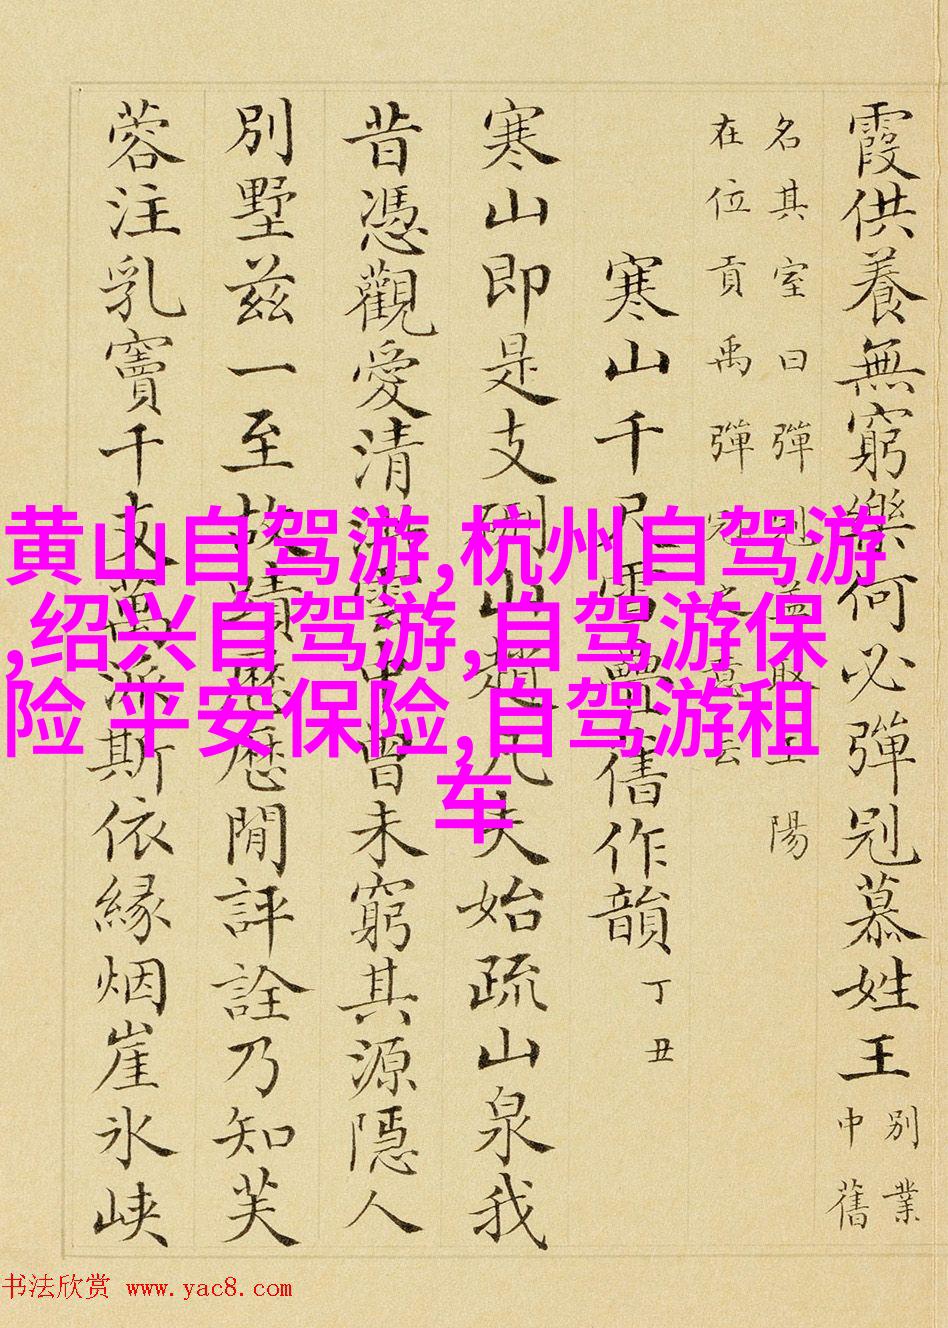 霞供養無窮樂何必彈冠慕姓王
別業
中舊
名其室曰彈冠盖取王陽
在位貢禹彈冠之意云
寒山千尺雪疊舊作韻 丁丑
寒山即是支硎山趙凡夫始疏山泉我
昔憑觀愛清游曽未窮其源隱人
別墅兹一至故蹟歷歷閒評詮乃知芙
蓉注乳竇千支萬派斯依緣烟崖氷峡
黄山自驾游,杭州自驾游
,绍兴自驾游,自驾游保
险 平安保险,自驾游租
车
书法欣赏 www.yac8.com